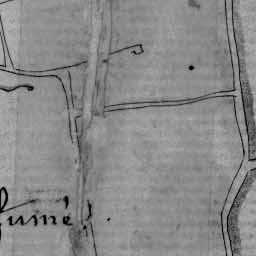 fumé